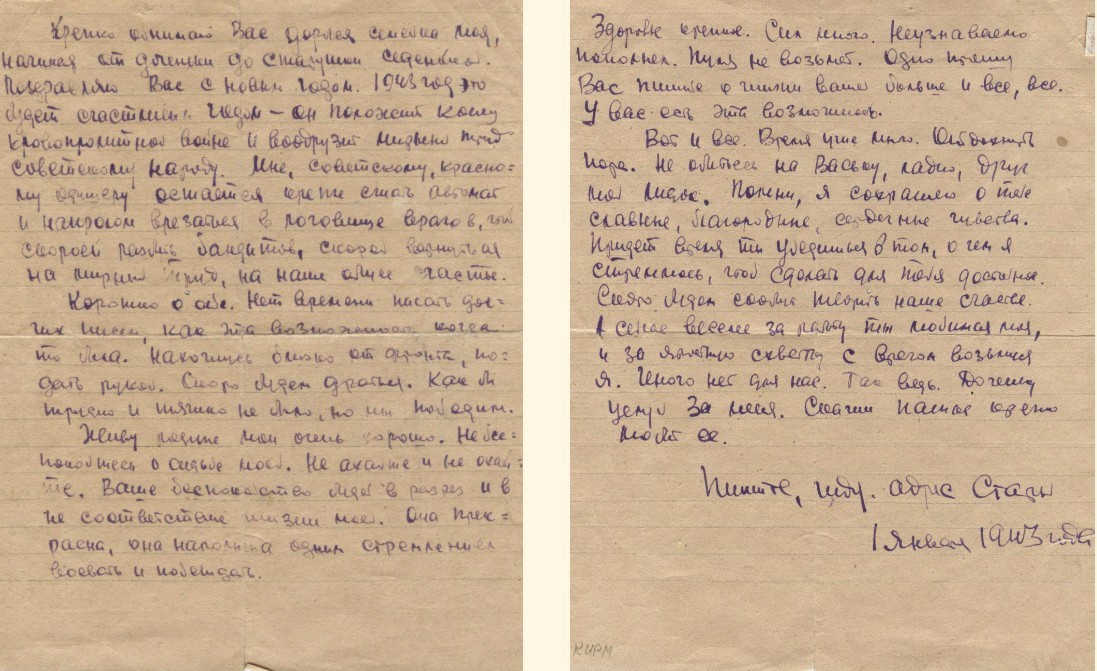 Крепко обнимаю Вас дорогая семейка моя,
начиная от доченьки до старушки седенькой.
Поздравляю Вас с новым годом. 1943 год это
будет счастливым годом – он положит конец
кровопролитной войне и вооружит мирным трудом
советскому народу. Мне, советскому, красно-
му офицеру остается крепче сжать автомат
и напролом врезаться в логовище врагов, чтоб
скорей разбить бандитов, скорей вернуться
на мирный труд, на наше общее счастье.
Коротко о себе. Нет времени писать дол-
гих писем, как эта возможность когда
то была. Нахожусь близко от фронта, по-
дать рукой. Скоро будем драться. Как бы
трудно и тяжко не было, но мы победим.
Живу родные мои очень хорошо. Не бес-
покойтесь о судьбе моей. Не ахайте и не охай-
те. Ваше беспокойство идет в разрез и в
не соответствие жизни моей. Она прек-
расна, она наполнена одним стремлением
воевать и побеждать.
Здоровье крепкое. Сил много. Неузнаваемо
пополнел. Пуля не возьмет. Одно прошу
Вас пишите о жизни вашей больше и все, все.
У вас есть эта возможность.
Вот и все. Время уже много.
пора. Не обижайся на Ваську, ладно, друг
мой Лидок. Помни, я сохраняю о тебе
славные, благородные, сердечные чувства.
Придет время ты убедишься в том, о чем я
стремлюсь, чтоб сделать для тебя достойное.
Скоро будем сообща творить наше счастье.
А сейчас веселее за работу ты любимая моя,
и за яростную схватку с врагом возьмусь
я. Иного нет для нас. Так ведь. Доченьку
целуй за меня. Скажи папка крепко
любит ее.
Пишите, жду. адрес Стары
1 января 1943 года
КИРМ